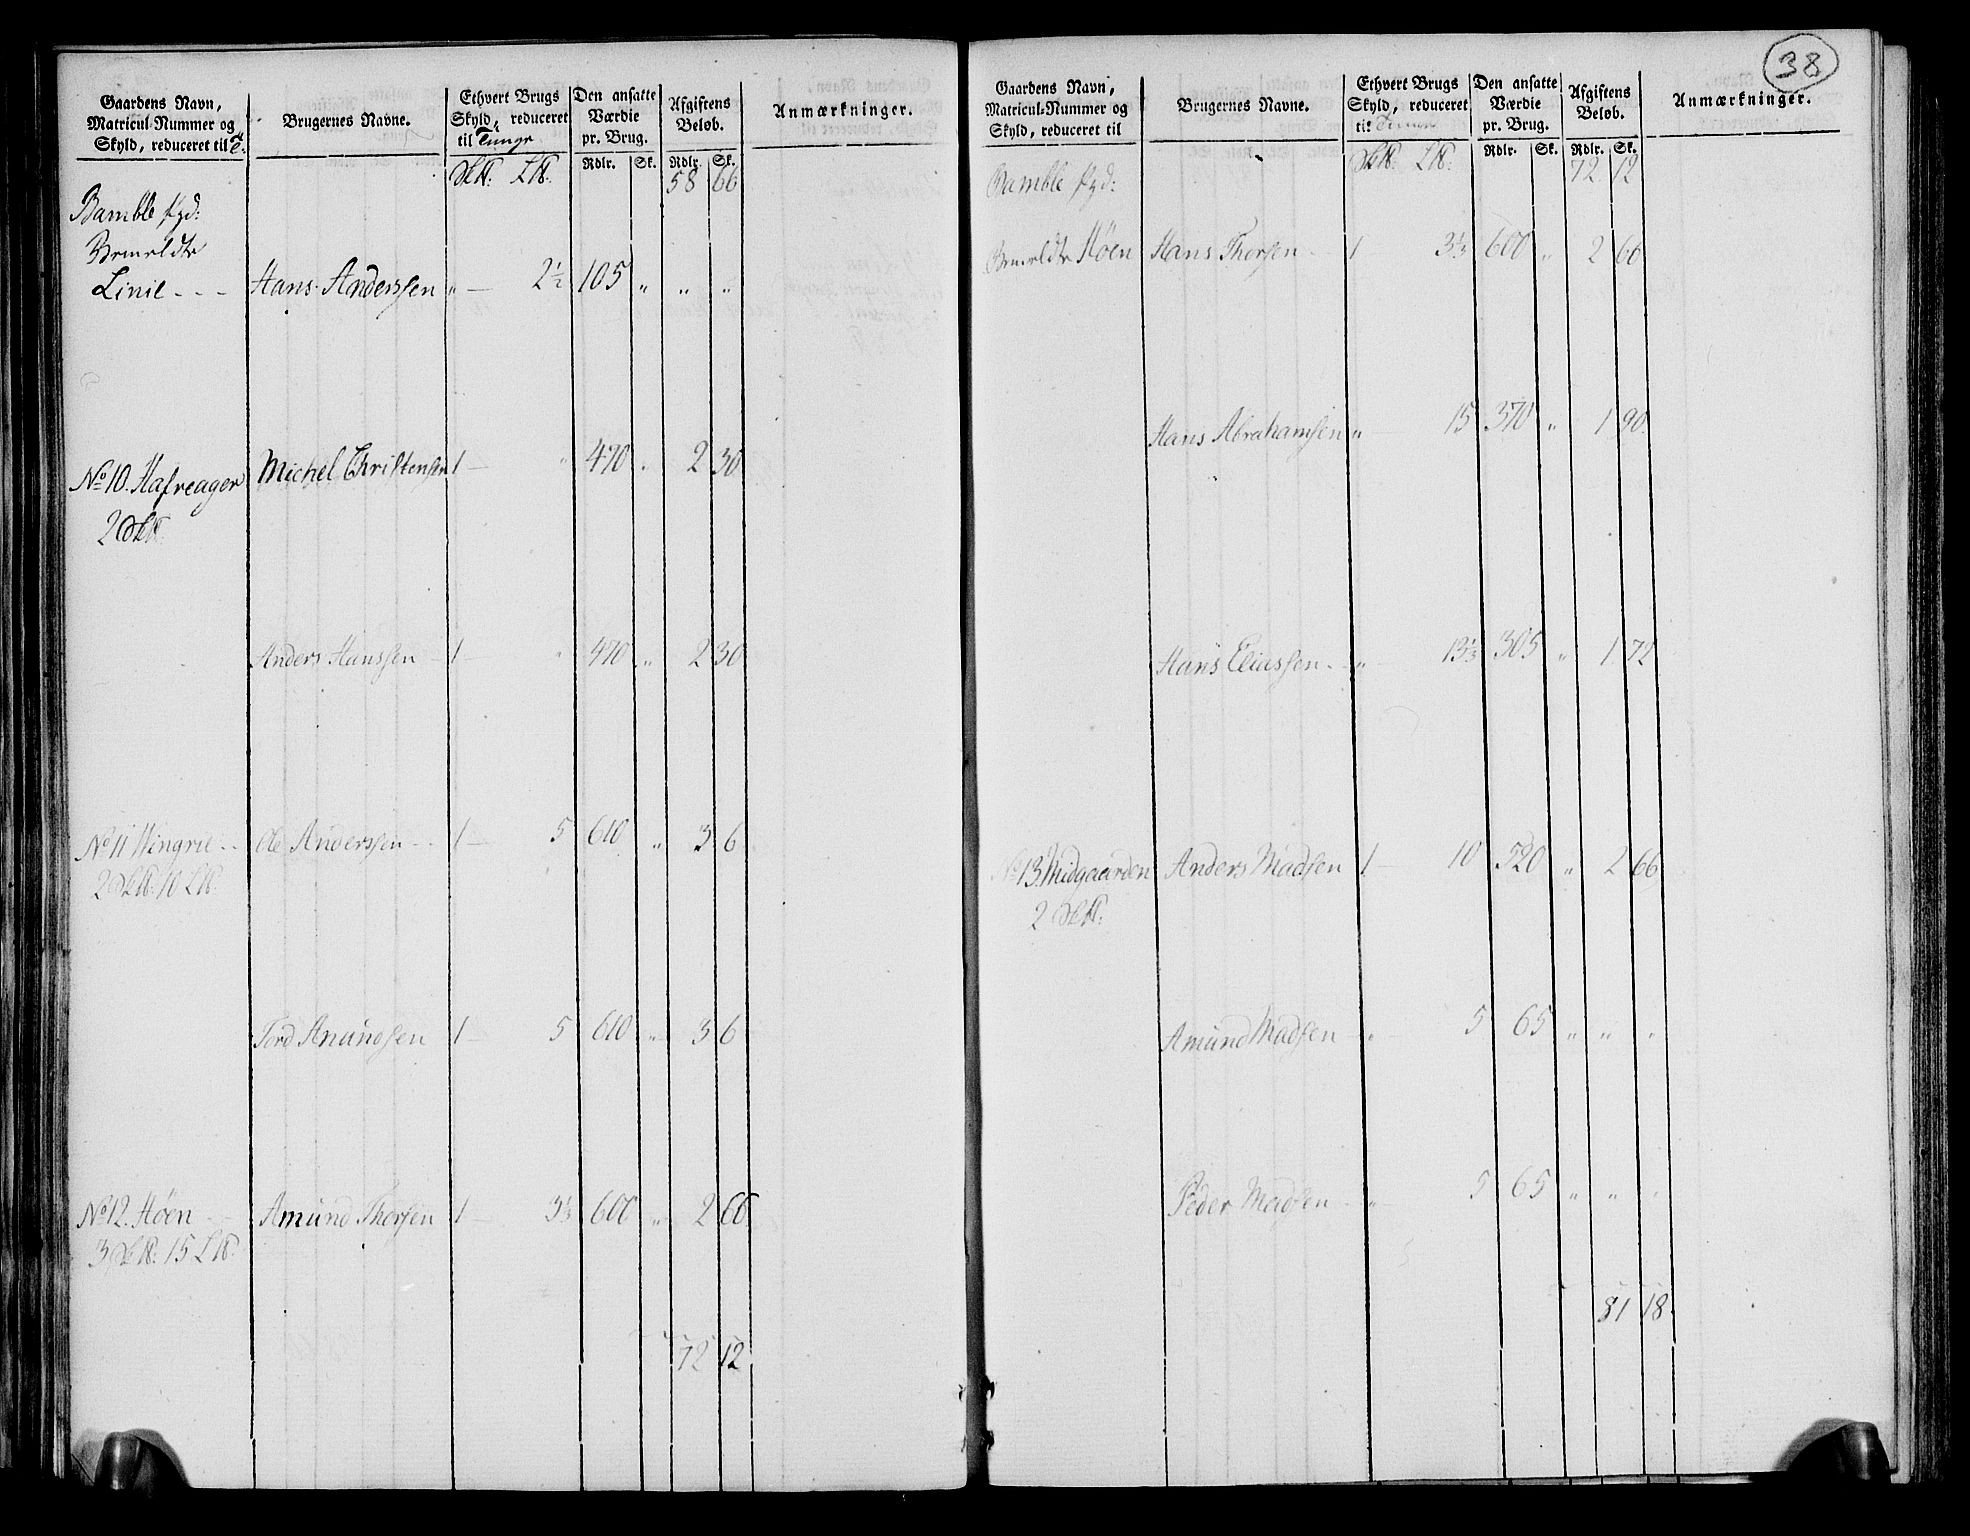 38
Gaardens Navn, Matricul-Nummer og Skyld, reduceret til T.
Brugernes Navne.
Ethvert Brugs Skyld, reduceret til Tunge
Den ansatte Værdie pr. Brug.
Afgiftens Beløb.
Anmærkninger.
Rdlr. Sk. Rdlr. Sk.
58 66
Bamble
Bemeldte
Linie - - - Hans Anderssen " — 2½ 105 " " "
No 10. Hafreager Michel Christensen 1 — " 470 " 2 30
2
Anders Hanssen - 1 — " 470 " 2 30
No 11 Wingrie - - Ole Anderssen - - 1 — 5 610 " 3 6
2 10
Tord Amundsen 1 — 5 610 " 3 6
No 12. Høen - - Amund Thorsen 1 — 3⅓ 600 " 2 66
3 15
72 12
Gaardens Navn, Matricul-Nummer og Skyld, reduceret til
Brugernes Navne.
Ethvert Brugs Skyld, reduceret til Tunge
Den ansatte Værdie pr. Brug.
Afgiftens Beløb.
Anmærkninger.
Rdlr. Sk. Rdlr. Sk.
72 12
Bamble
Bemeldte Høen Hans Thorsen - 1 3⅓ 600 " 2 66
Hans Abrahamsen " 15 370 " 1 90
Hans Eliassen - " 13⅓ 305 " 1 72
No 13. Midgaarden Anders Madsen 1 — 10 520 " 2 66
2
Amund Madsen — " 5 65 " " "
Peder Madsen - " 5 65 " " "
81 18